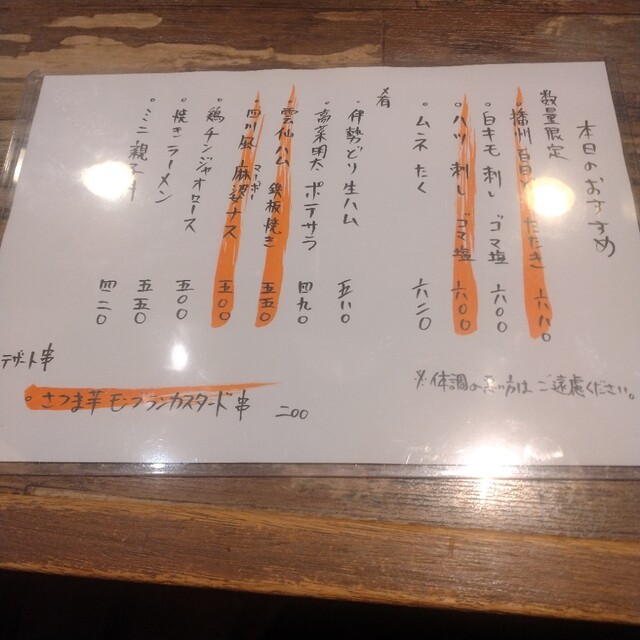 本日のおすすめ
数量限定
・播州百日 たたき 六八〇
・白キモ刺し ゴマ塩 六〇〇
・ハツ刺し ゴマ塩 六〇〇
・ムネたく 六二〇
※体調の悪い方はご遠慮ください。
肴
・伊勢どり生ハム 五八〇
・高菜明太ポテサラ 四九〇
・雲仙ハム 鉄板焼き 五五〇
・四川風麻婆ナス 五〇〇
マーボー
・鶏チンジャオロース 五〇〇
・焼きラーメン 五五〇
・ミニ親子丼 四二〇
デザート串
・さつま芋モンブランカスタード串 二〇〇